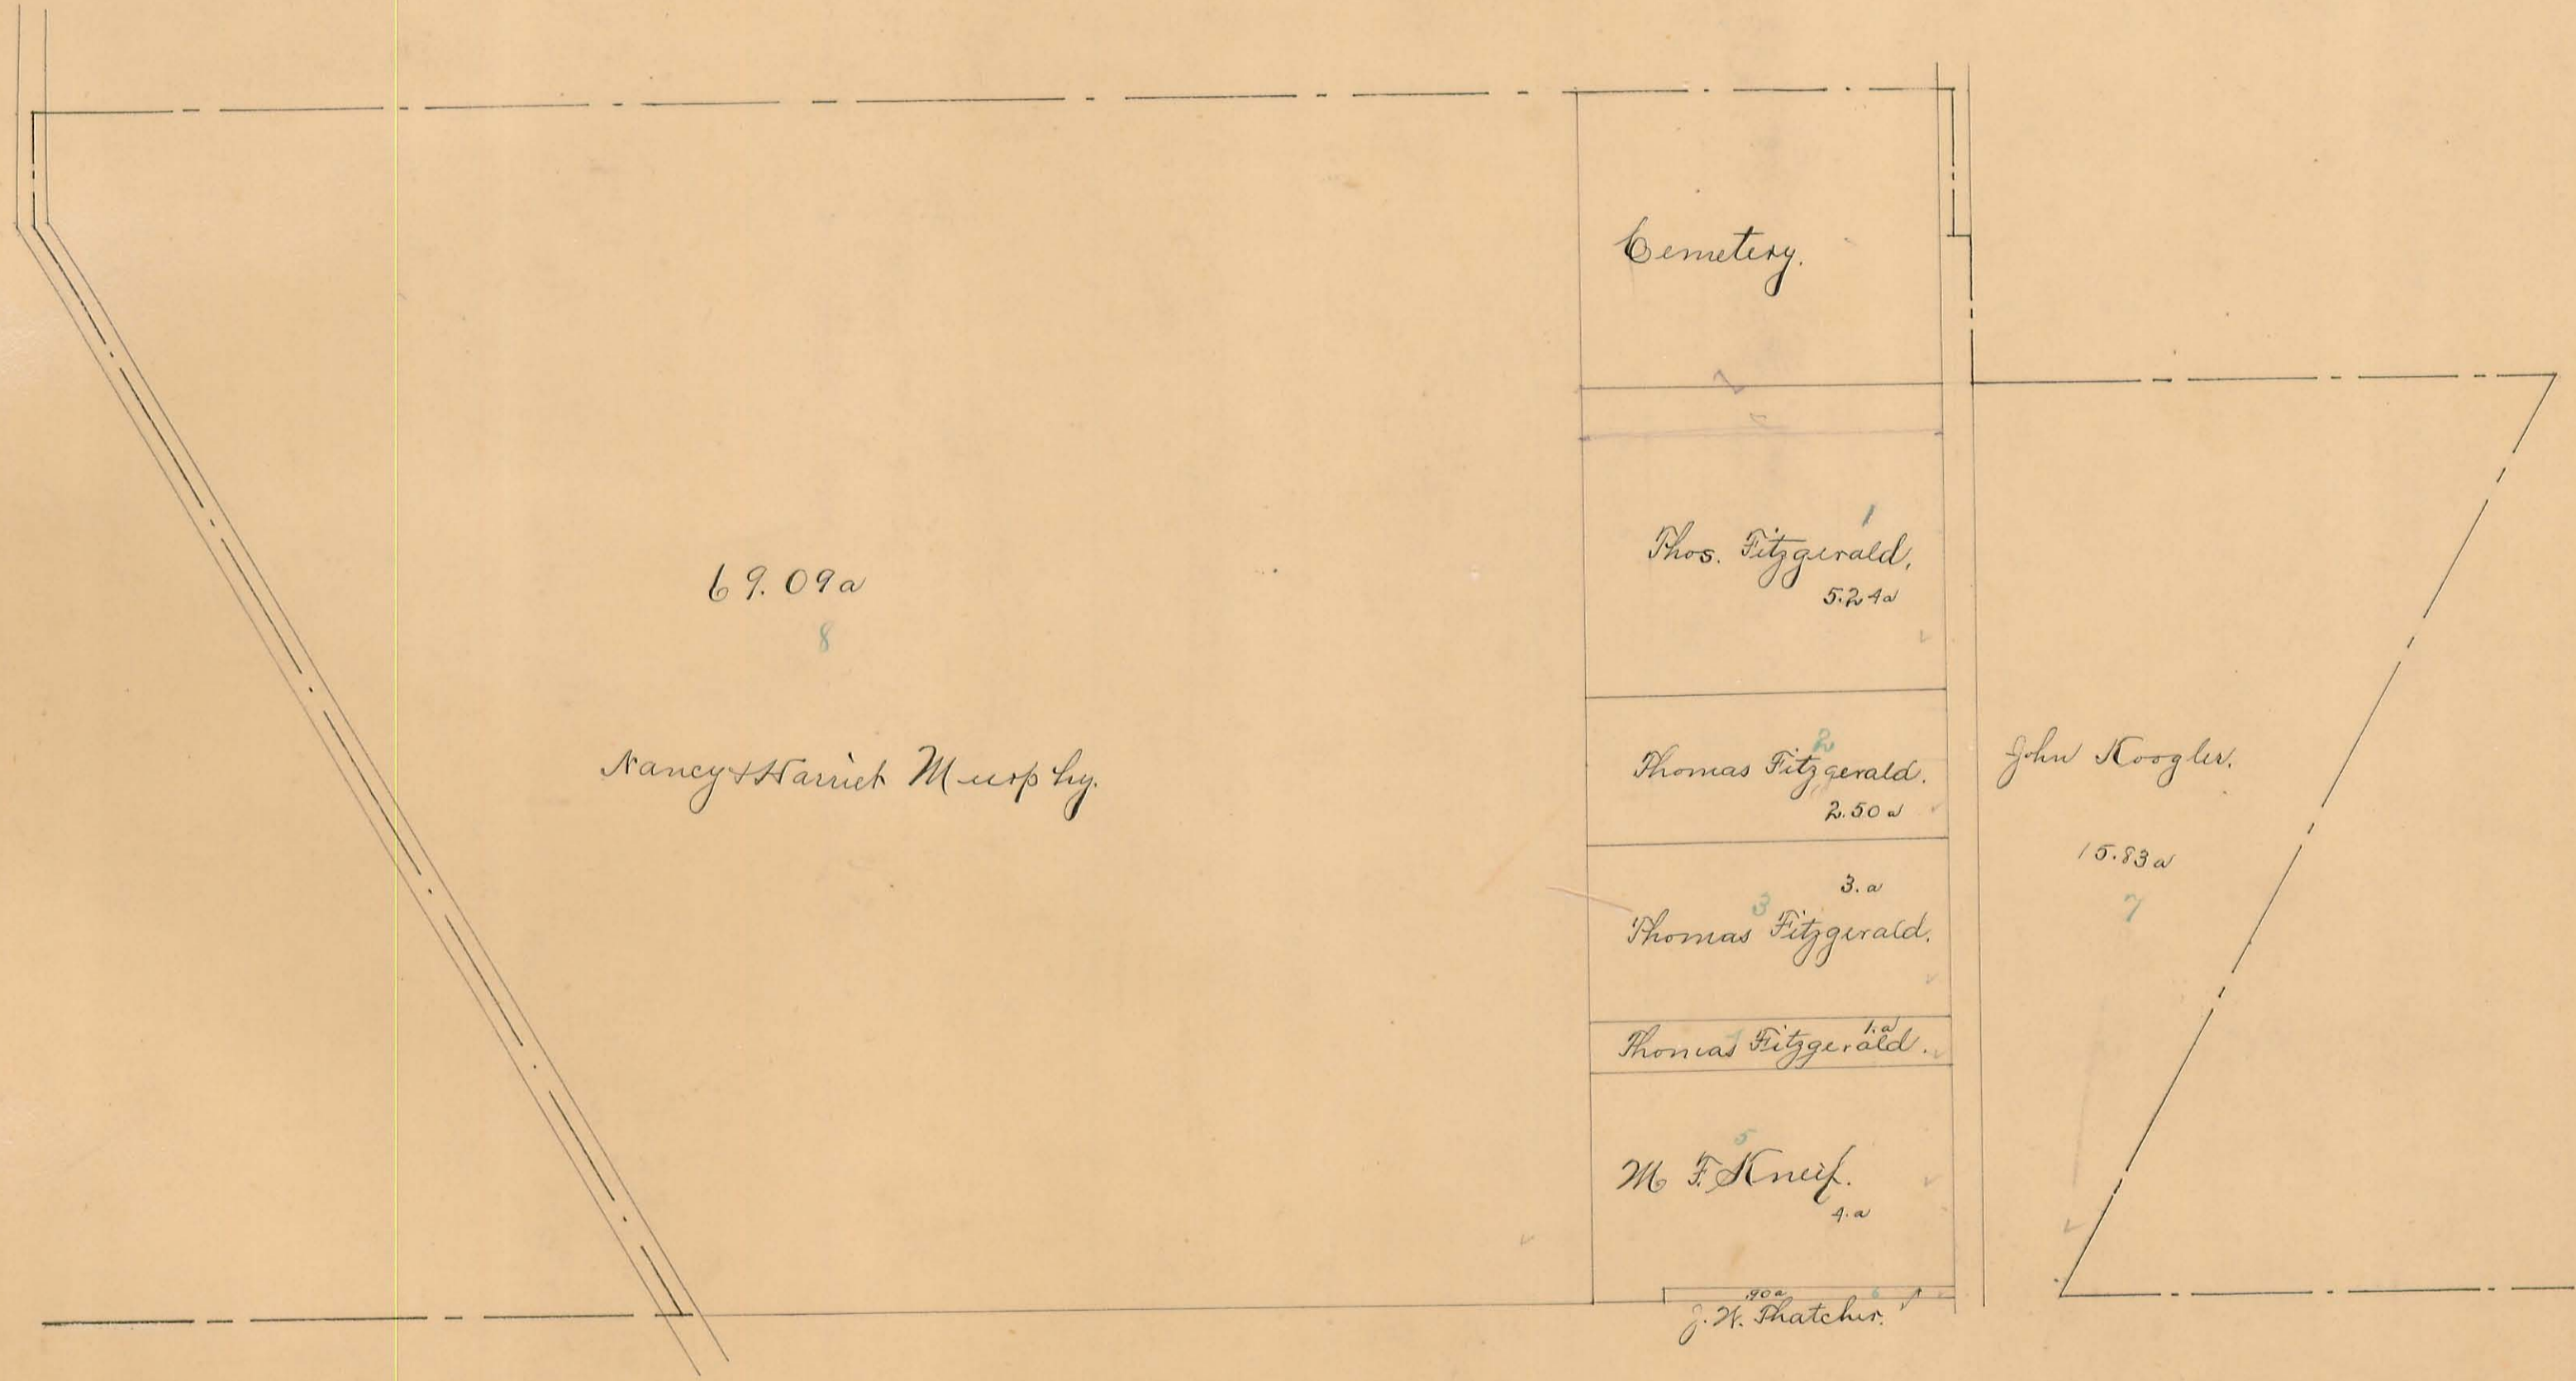 Cemetery.
69.09a
8
Nancy & Harriet Murphy.
1
Thos. Fitzgerald,
5.24a
2
Thomas Fitzgerald.
2.50a
3.a
3
Thomas Fitzgerald.
1.a
Thomas Fitzgerald.
5
M F. Kneif.
4.a
.90a
6
J. W. Thatcher.
John Koogler.
15.83a
7